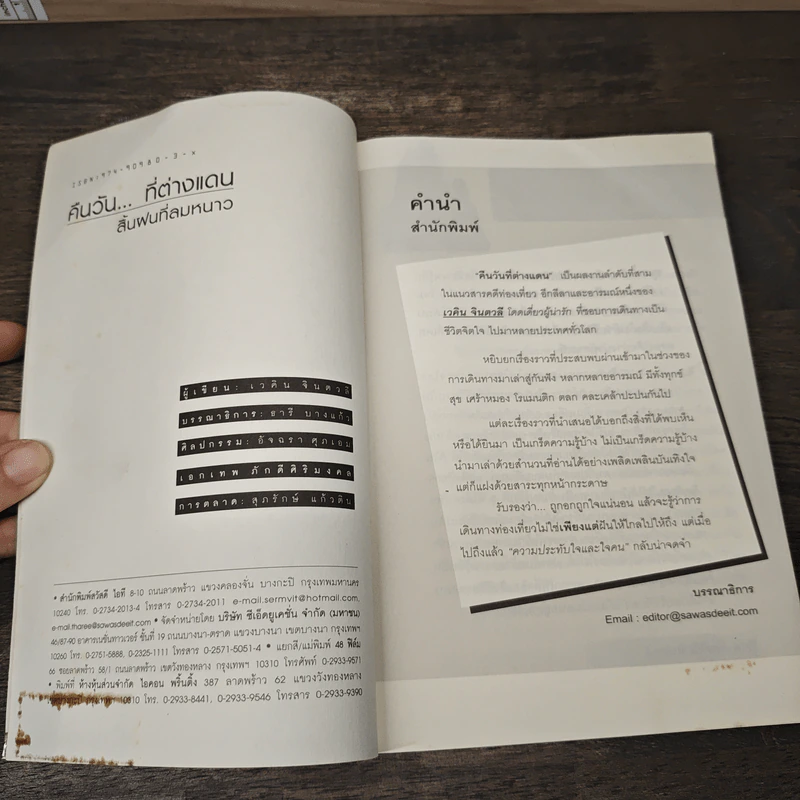 ISBN:974-90980-3-x
คืนวัน... ที่ต่างแดน
สิ้นฝนที่ลมหนาว
ผู้เขียน: เวคิน จินตวลี
บรรณาธิการ: ธารี บางแก้ว
ศิลปกรรม: อัจฉรา ศุภเอม
เอกเทพ ภักดีศิริมงคล
การตลาด: สุภรักษ์ แก้วตีบ
• สำนักพิมพ์สวัสดี ไอที 8-10 ถนนลาดพร้าว แขวงคลองจั่น บางกะปิ กรุงเทพมหานคร
10240 โทร. 0-2734-2013-4 โทรสาร 0-2734-2011 e-mail.sermvit@hotmail.com,
e-mail.tharee@sawasdeeit.com • จัดจำหน่ายโดย บริษัท ซีเอ็ดยูเคชั่น จำกัด (มหาชน)
46/87-90 อาคารเนชั่นทาวเวอร์ ชั้นที่ 19 ถนนบางนา-ตราด แขวงบางนา เขตบางนา กรุงเทพฯ
10260 โทร. 0-2751-5888, 0-2325-1111 โทรสาร 0-2571-5051-4 • แยกสี/แม่พิมพ์ 48 ฟิล์ม
66 ซอยลาดพร้าว 58/1 ถนนลาดพร้าว เขตวังทองหลาง กรุงเทพฯ 10310 โทรศัพท์ 0-2933-9571
• พิมพ์ที่ ห้างหุ้นส่วนจำกัด ไอคอน พริ้นติ้ง 387 ลาดพร้าว 62 แขวงวังทองหลาง
10310 โทร. 0-2933-8441, 0-2933-9546 โทรสาร 0-2933-9390
คำนำ
สำนักพิมพ์
"คืนวันที่ต่างแดน" เป็นผลงานลำดับที่สาม
ในแนวสารคดีท่องเที่ยว อีกลีลาและอารมณ์หนึ่งของ
เวคิน จินตวลี โดดเดี่ยวผู้น่ารัก ที่ชอบการเดินทางเป็น
ชีวิตจิตใจ ไปมาหลายประเทศทั่วโลก
หยิบยกเรื่องราวที่ประสบพบผ่านเข้ามาในช่วงของ
การเดินทางมาเล่าสู่กันฟัง หลากหลายอารมณ์ มีทั้งทุกข์
สุข เศร้าหมอง โรแมนติก ตลก คละเคล้าปะปนกันไป
แต่ละเรื่องราวที่นำเสนอได้บอกถึงสิ่งที่ได้พบเห็น
หรือได้ยินมา เป็นเกร็ดความรู้บ้าง ไม่เป็นเกร็ดความรู้บ้าง
นำมาเล่าด้วยสำนวนที่อ่านได้อย่างเพลิดเพลินบันเทิงใจ
แต่ก็แฝงด้วยสาระทุกหน้ากระดาษ
รับรองว่า... ถูกอกถูกใจแน่นอน แล้วจะรู้ว่าการ
เดินทางท่องเที่ยวไม่ใช่เพียงแต่ฝันให้ไกลไปให้ถึง แต่เมื่อ
ไปถึงแล้ว "ความประทับใจและใจคน" กลับน่าจดจำ
บรรณาธิการ
Email : editor@sawasdeeit.com